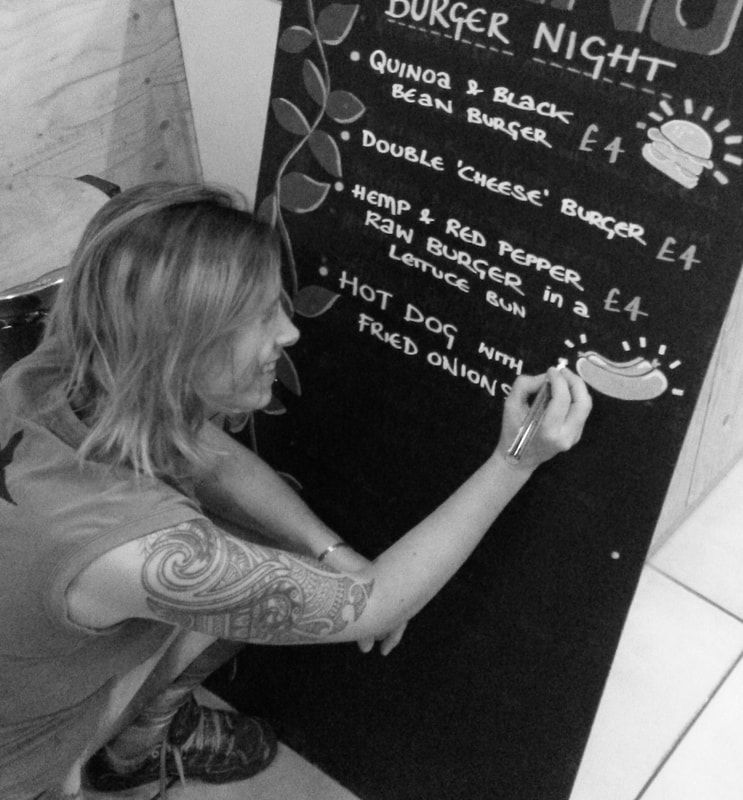 BURGER NIGHT
• QUINOA & BLACK
BEAN BURGER £4
• DOUBLE 'CHEESE' BURGER £4
• HEMP & RED PEPPER
RAW BURGER in a £4
LETTUCE BUN
• HOT DOG WITH
FRIED ONIONS